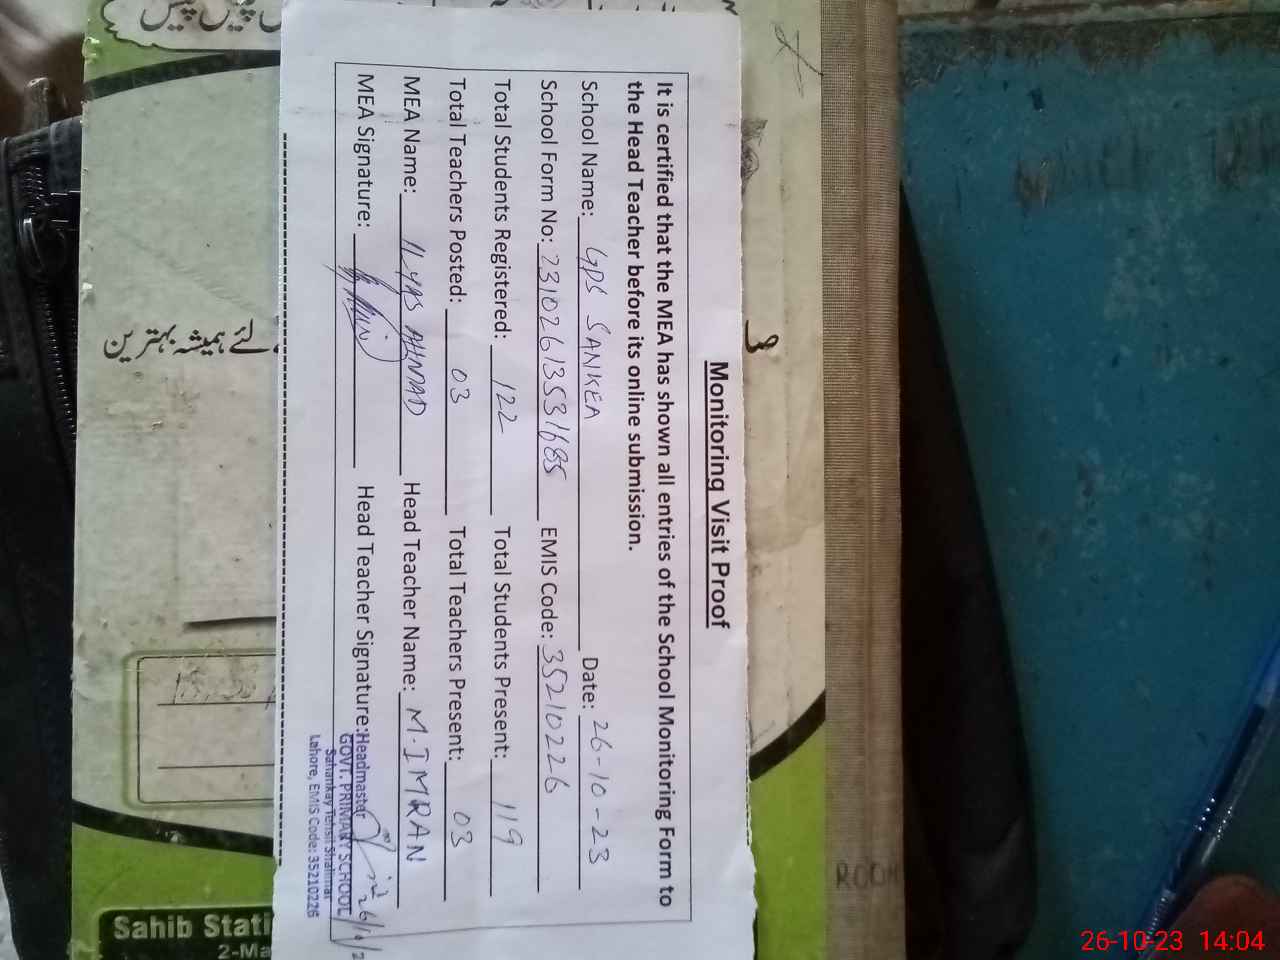 Monitoring Visit Proof
It is certified that the MEA has shown all entries of the School Monitoring Form to
the Head Teacher before its online submission.
School Name: GPS SANKEA Date: 26-10-23
School Form No: 23102613531685 EMIS Code: 35210226
Total Students Registered: 122 Total Students Present: 119
Total Teachers Posted: 03 Total Teachers Present: 03
MEA Name: ILYAS AHMAD Head Teacher Name: M. IMRAN
MEA Signature: Head Teacher Signature:
Headmaster
GOVT. PRIMARY SCHOOL
Sahankay Tehsil Shalimar
Lahore, EMIS Code: 35210226
لئے ہمیشہ بہترین
Sahib Stati
2-Ma
ROOH
26-10-23 14:04